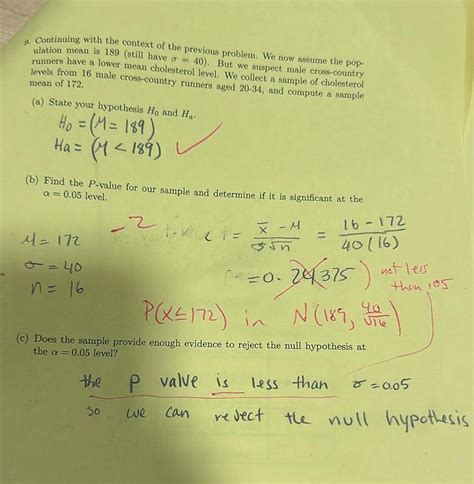 9. Continuing with the context of the previous problem. We now assume the pop-
ulation mean is 189 (still have σ = 40). But we suspect male cross-country
runners have a lower mean cholesterol level. We collect a sample of cholesterol
levels from 16 male cross-country runners aged 20-34, and compute a sample
mean of 172.
(a) State your hypothesis H₀ and Hₐ.
H₀ = (M = 189)
Ha = (M < 189) ✓
(b) Find the P-value for our sample and determine if it is significant at the
α = 0.05 level.
-2
t = x̄ - M / σ√n = 16 - 172 / 40 (16)
M = 172
σ = 40
n = 16
= 0.24375) not less
than .05
P(X ≤ 172) in N(189, 40/√16)
(c) Does the sample provide enough evidence to reject the null hypothesis at
the α = 0.05 level?
the p value is less than σ = 0.05
so we can reject the null hypothesis